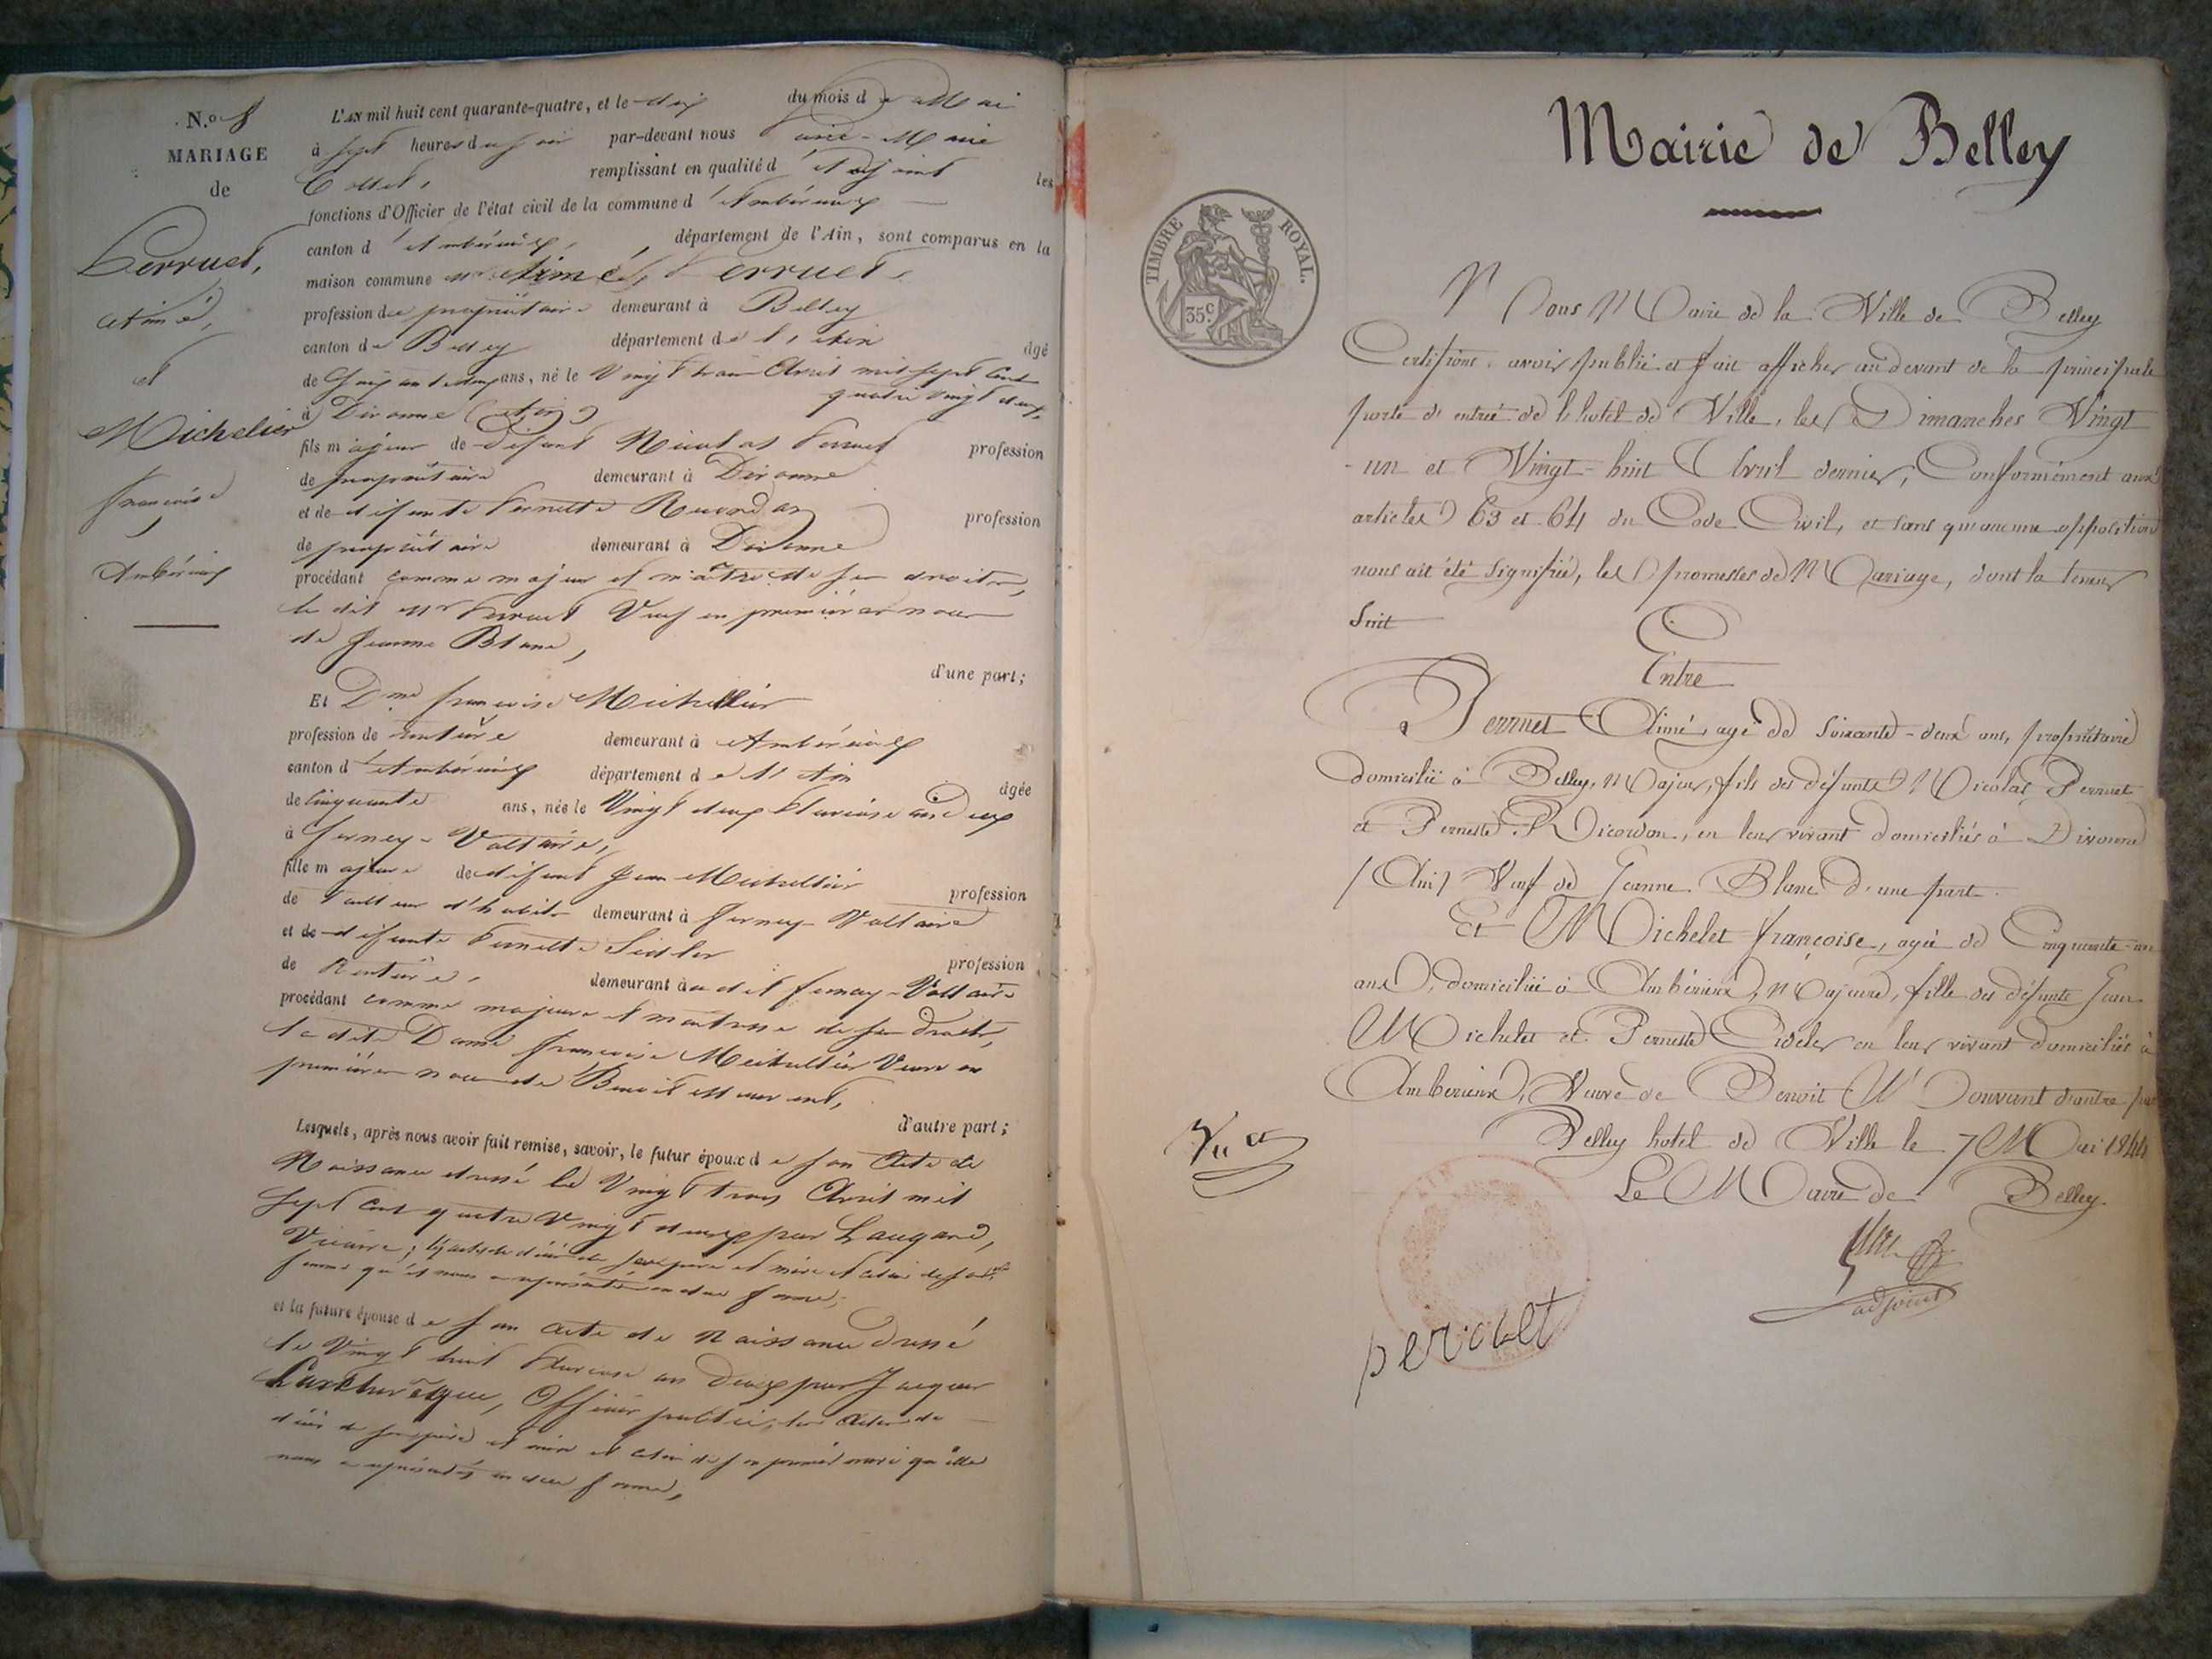 N.o 8
MARIAGE
de
Perruet,
Aimé,
et
Michelier
françoise
Ambérieux
L'AN mil huit cent quarante-quatre, et le dix du mois de Mai
à sept heures du soir par-devant nous Marie
Collet, remplissant en qualité d'adjoint les
fonctions d'Officier de l'état civil de la commune d'Ambérieux
canton d'Ambérieux, département de l'Ain, sont comparus en la
maison commune Mr Aimé, Perruet,
profession de propriétaire demeurant à Belley
canton de Belley département de l'Ain âgé
de soixante deux ans, né le Vingt trois Avril mil sept cent
quatre vingt deux
à Divonne (Ain)
fils majeur de défunt Nicolas Perruet profession
de propriétaire demeurant à Divonne
et de défunte Pernette profession
de propriétaire demeurant à Divonne
procédant comme majeur et maître de ses droits,
le dit Mr Perruet Veuf en premières noces
de Jeanne Blanc,
d'une part;
Et Dme françoise Michellier
profession de rentière demeurant à Ambérieux
canton d'Ambérieux département de l'Ain âgée
de cinquante ans, née le Vingt deux Pluviose an deux
à ferney-Voltaire,
fille majeure de défunt Jean Michellier profession
de tailleur d'habits demeurant à Ferney-Voltaire
et de défunte Pernette Sidler profession
de Rentière, demeurant au dit ferney-Voltaire
procédant comme majeure et maitresse de ses droits,
la dite Dame françoise Michellier Veuve en
premières noces de Benoit
d'autre part;
Lesquels, après nous avoir fait remise, savoir, le futur époux de son Acte de
Naissance dressé le Vingt trois Avril mil
sept cent quatre Vingt deux par Laugard,
Vicaire; les actes de décès de ses père et mère et celui de sa
femme qu'il nous a représentés en due forme;
et la future épouse de son acte de naissance dressé
le Vingt huit Pluviose an deux par Jacques
Officier public, les actes de
décès de ses père et mère et celui de son premier mari qu'elle
nous a représentés en due forme,
Mairie de Belley
TIMBRE ROYAL.
35c
Nous Maire de la Ville de Belley
Certifions avoir publié et fait afficher au devant de la principale
porte d'entrée de l'hotel de Ville, les Dimanches Vingt
-un et Vingt-huit Avril dernier, Conformément aux
articles 63 et 64 du Code Civil, et sans qu'aucune opposition
nous ait été signifiée, les promesses de Mariage, dont la teneur
suit
Entre
Perruet Aimé, agé de soixante-deux ans, propriétaire
domicilié à Belley, Majeur, fils des défunts Nicolas Perruet
et Pernette Ricordon, en leur vivant domiciliés à Divonne
(Ain) Veuf de Jeanne Blanc d'une part.
Et Michelet françoise, agée de Cinquante-un
ans, domiciliée à Ambérieux, Majeure, fille des défunts Jean
Michelet et Pernette Cideler en leur vivant domiciliés à
Ambérieux, Veuve de Benoit d'autre part
Belley hotel de Ville le 7 Mai 1844
Le Maire de Belley.
Vu
adjoint